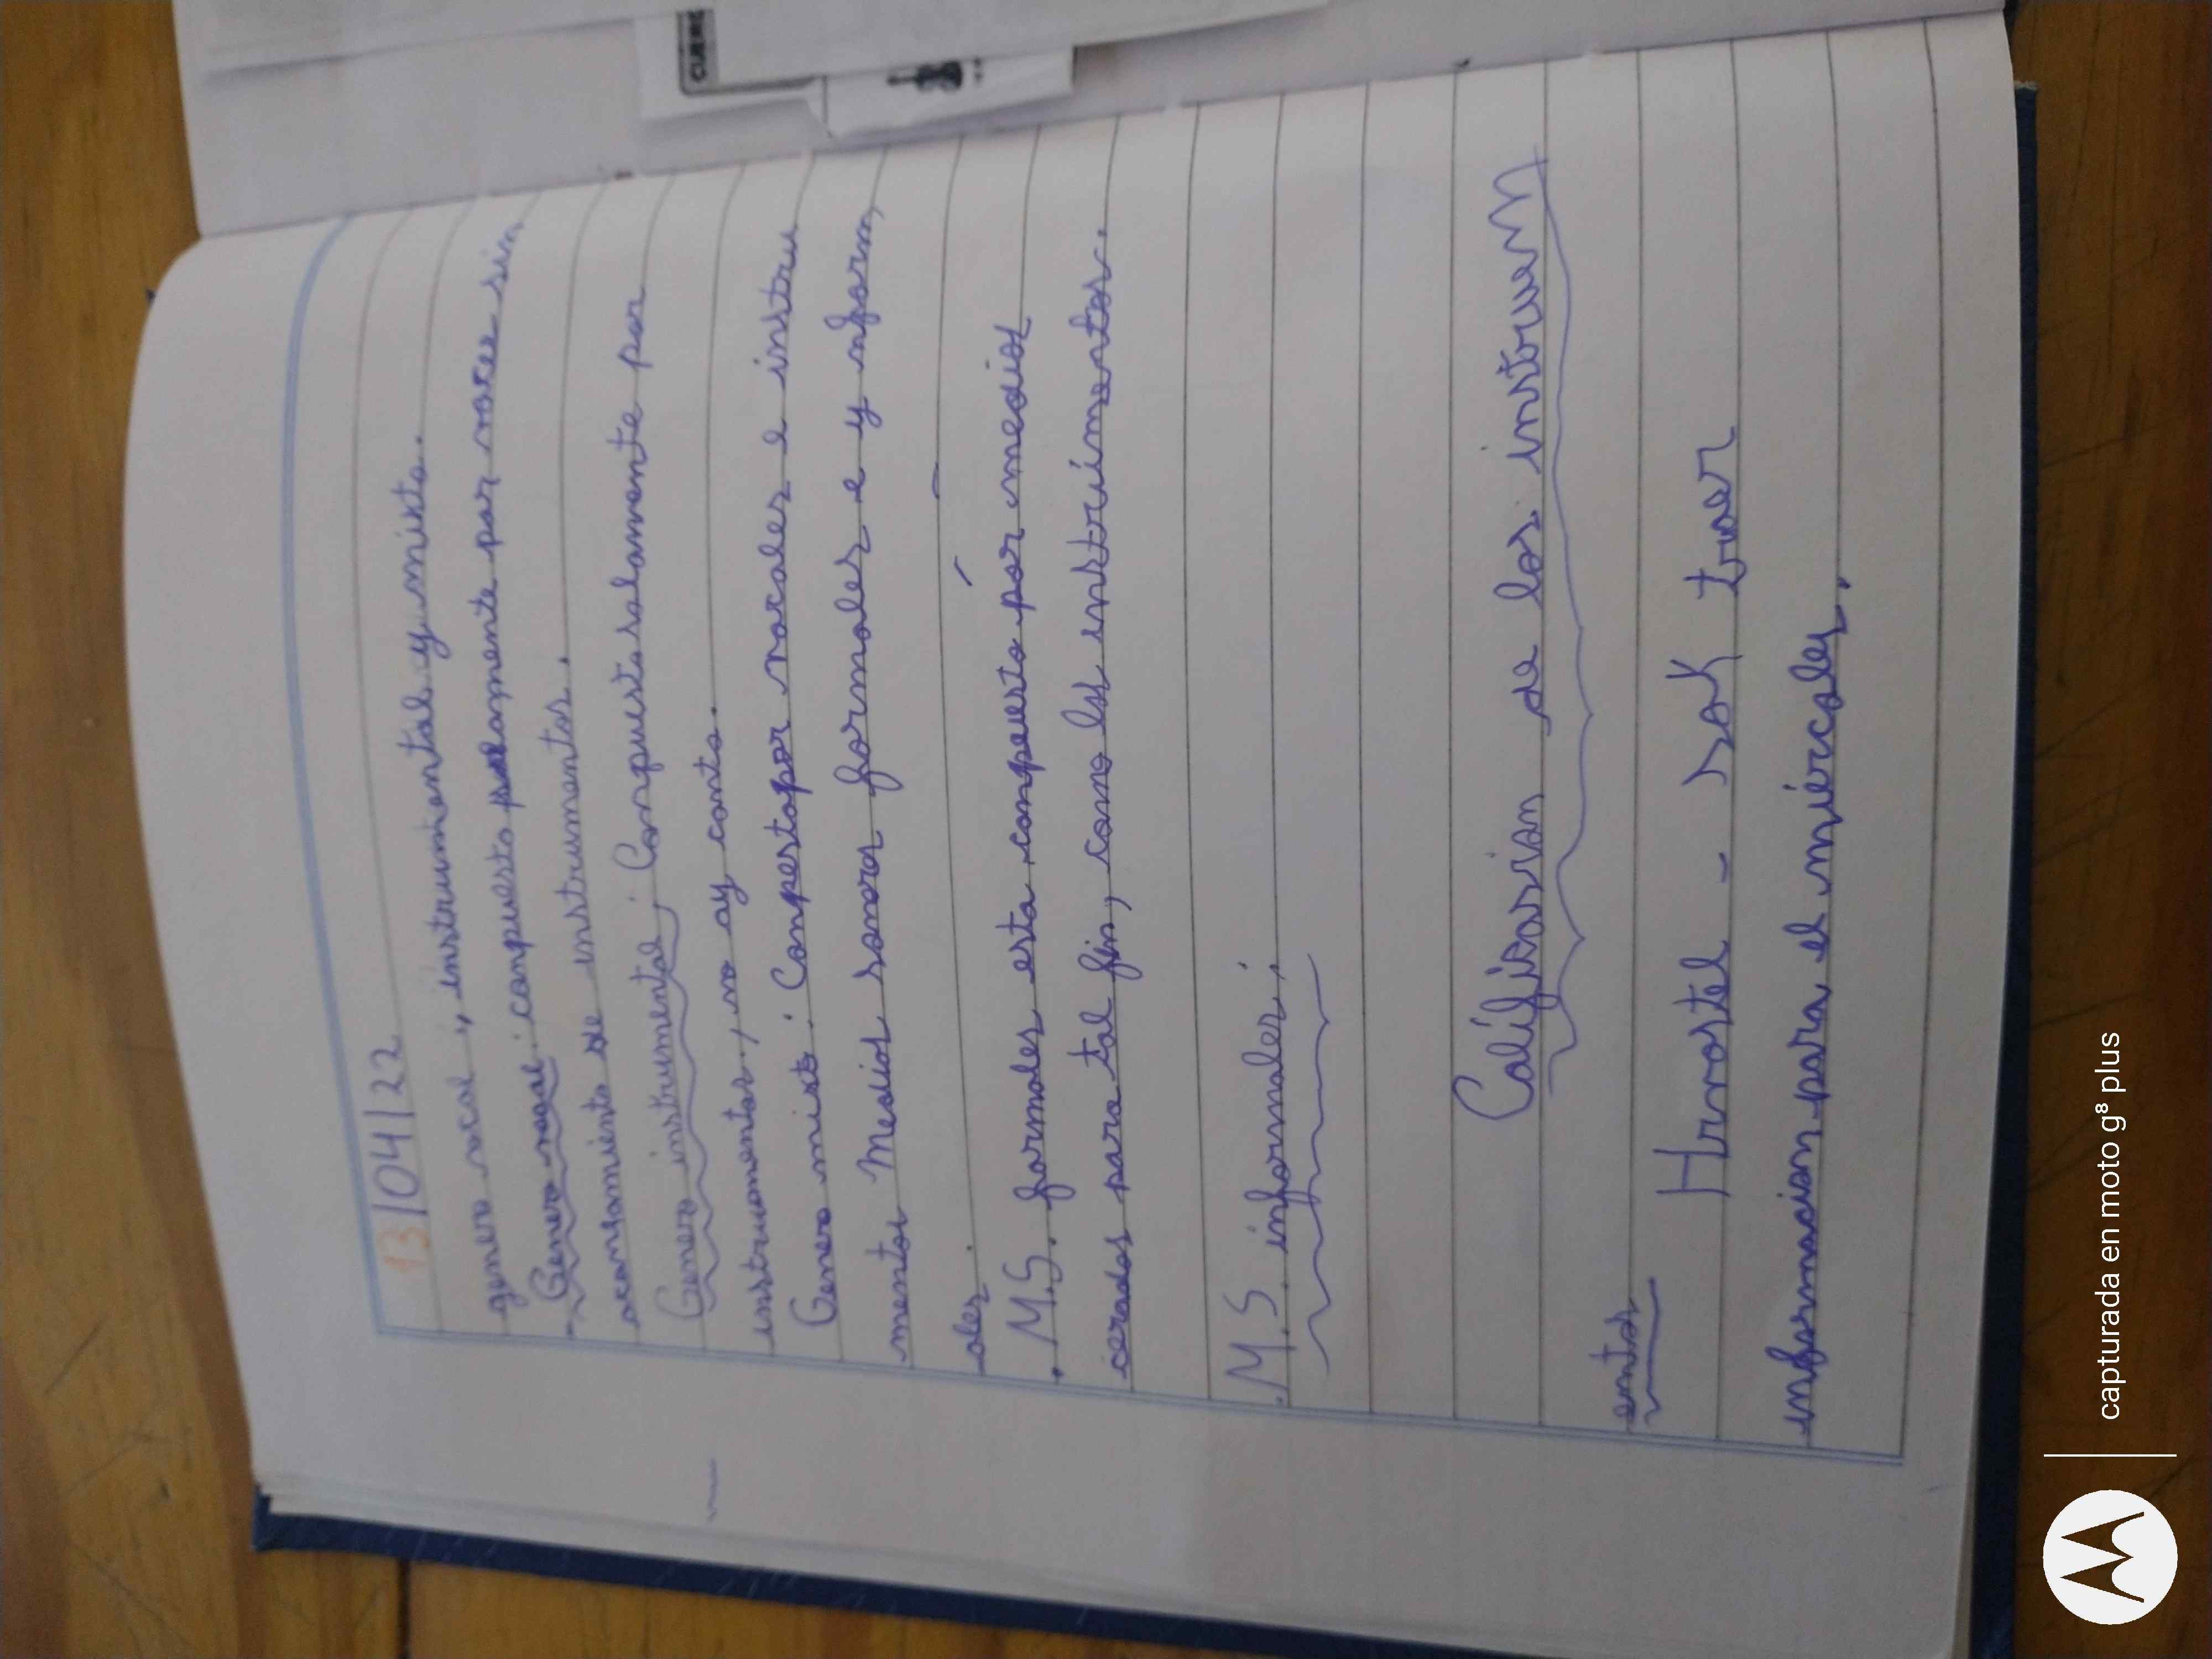 13/04/22
genero vocal, instrumental y mixto.
Genero vocal: conpuesto solamente por voces sin
acompañamiento de instrumentos.
Genero instrumental: Conpuesto solamente por
instrumentos, no ay canto.
Genero mixto: Conpestopor vocales e instru
mentos Medios sonoros formales e y nform
ales.
. M.S. formales esta conpuesto por medios
cerados para tal fin, como los instrumentos.
. M.S. informales:
Califícasion de los instruem
entos
Hrnostel - sak traer
informacion para el miércoles.
CUERD
capturada en moto g⁸ plus